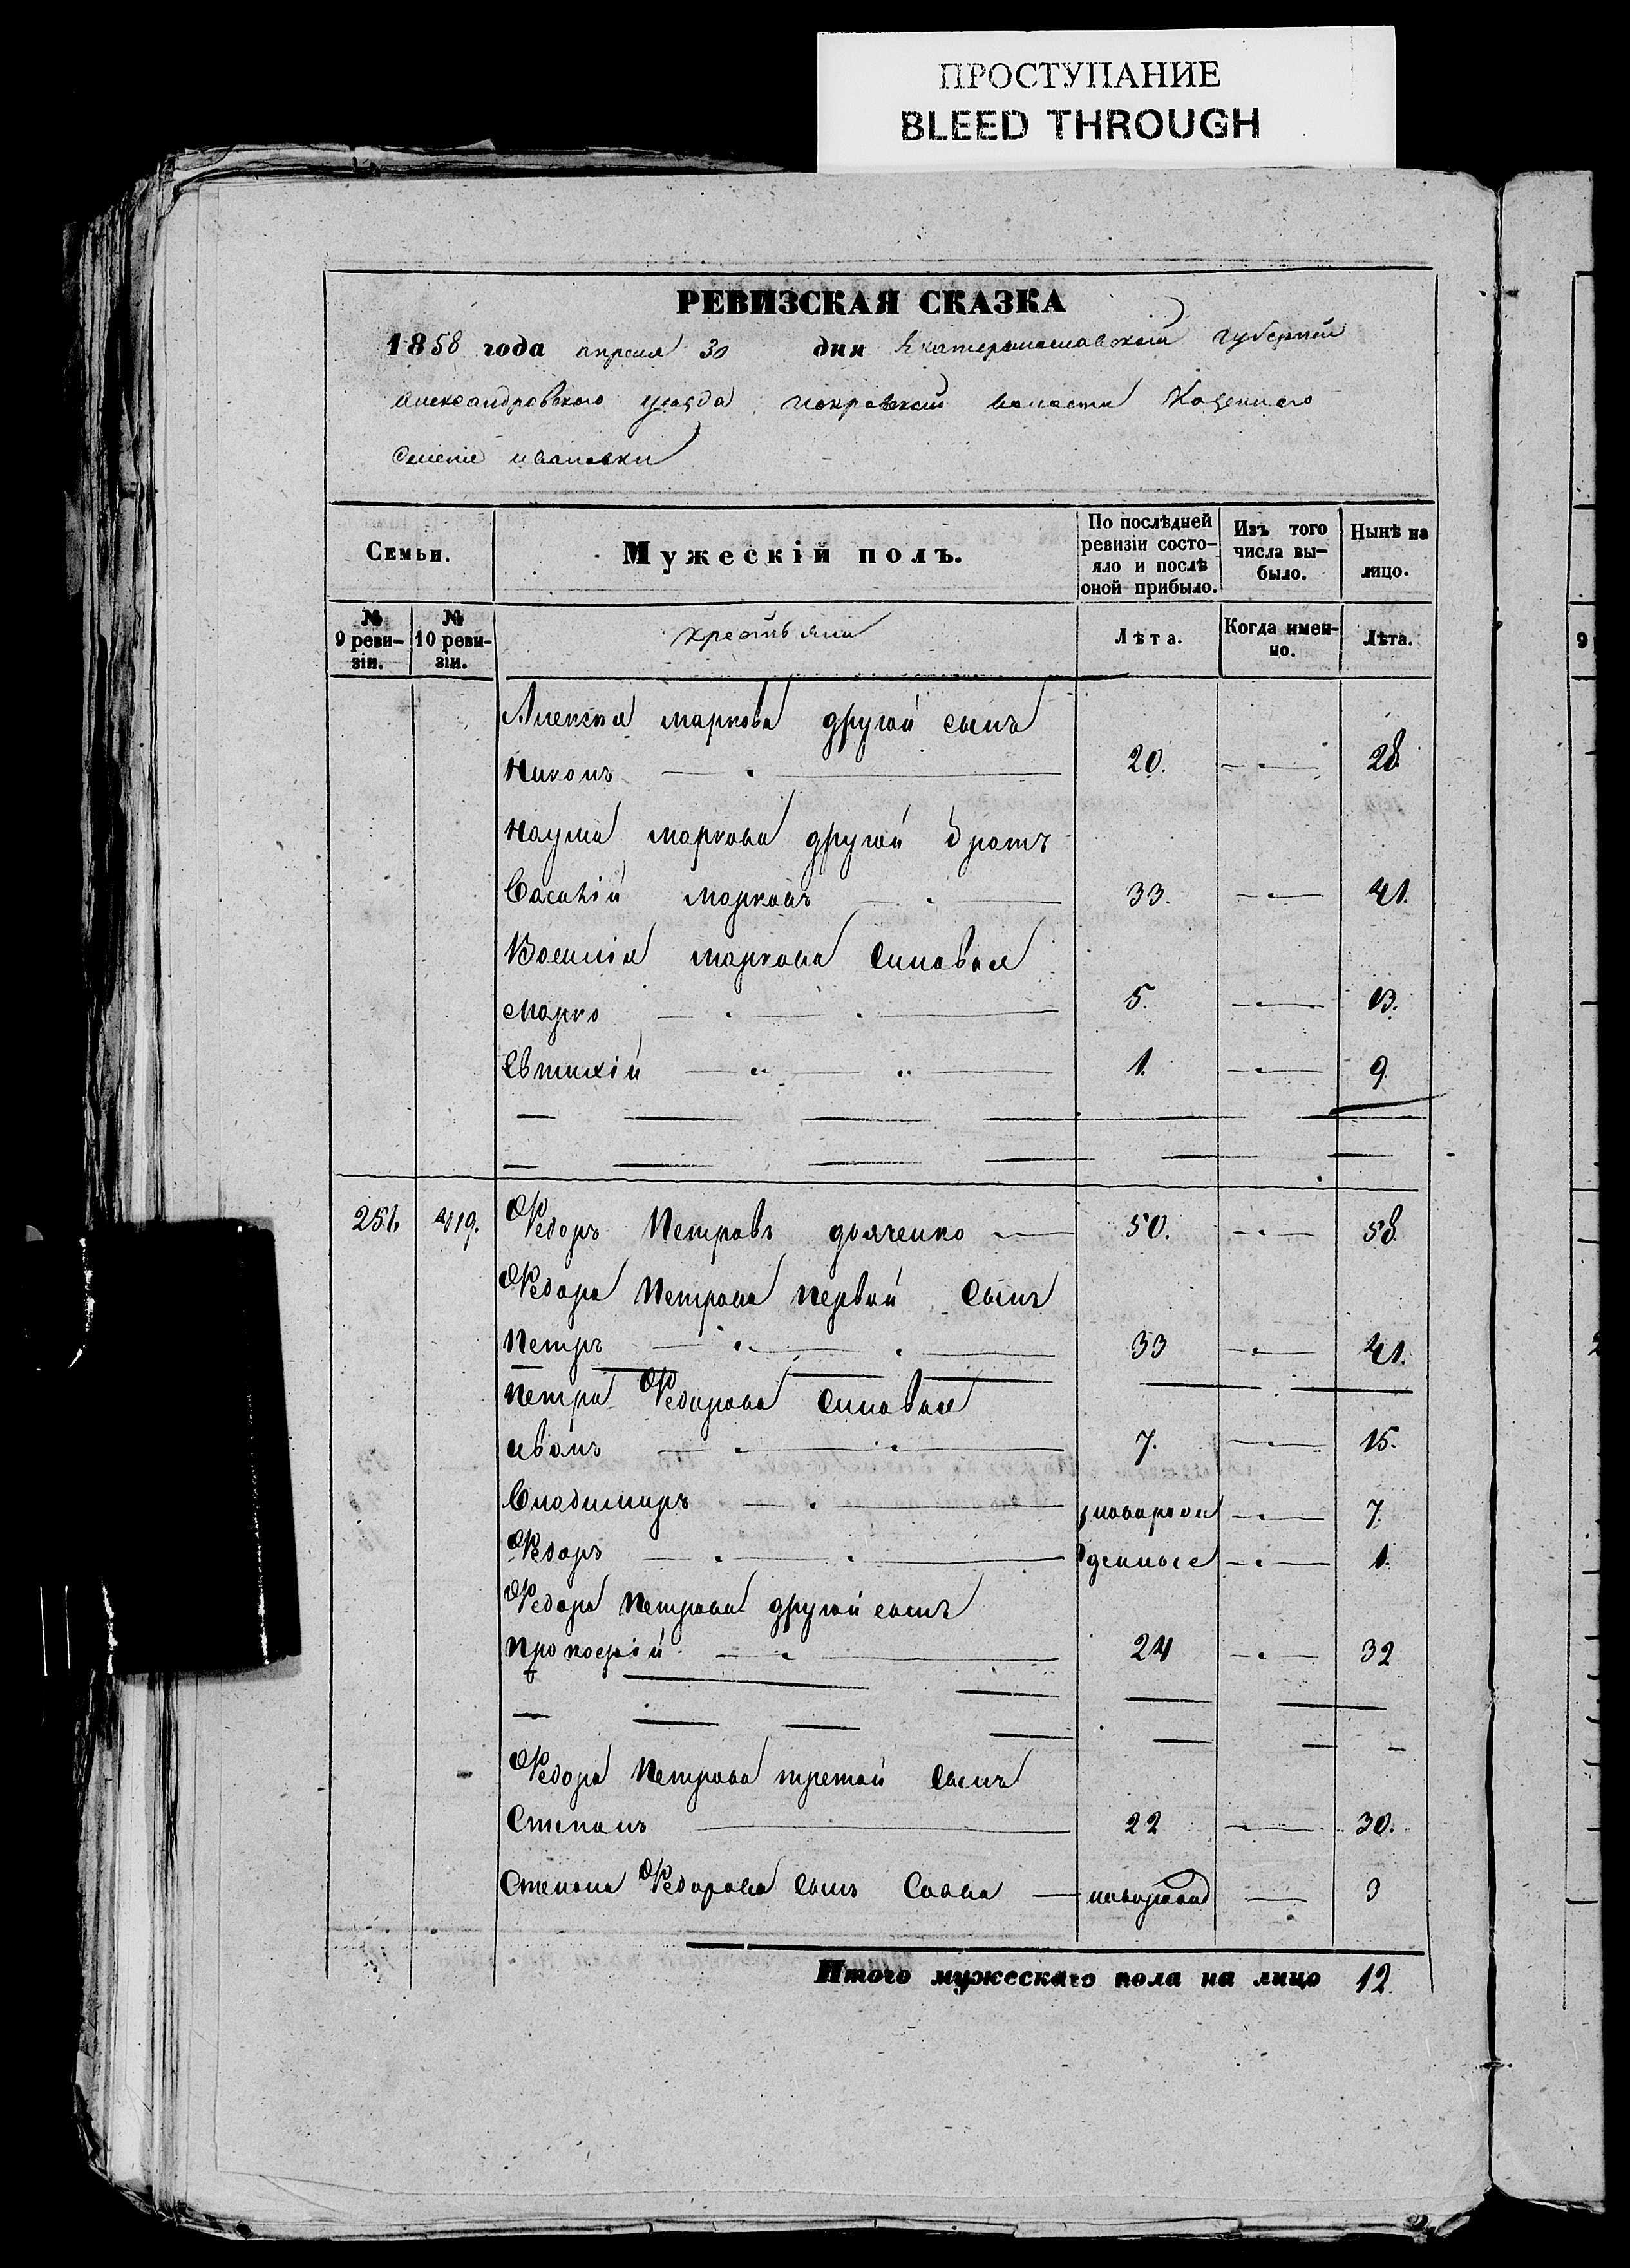 ПРОСТУПАНИЕ
BLEED THROUGH
РЕВИЗСКАЯ СКАЗКА
1858 года апреля 30 дня Екатеринославской губернии
Александровского уезда покровской волости Казенного
Селенiе ивановки
Семьи.
№ 9 реви-зiи.
№ 10 реви-зiи.
Мужескiй полъ.
крестьяни
По послѣдней ревизiи состо-яло и послѣ оной прибыло.
Лѣта.
Изъ того числа вы-было.
Когда имен-но.
Нынѣ на лицо.
Лѣта.
Алексея маркова другой сынъ
Никонъ 20. 28.
Наума маркова другой братъ
марковъ 33. 41.
Василiя маркова синовья
марко 5. 13.
Евтихiй 1. 9
251. 419. Федоръ Петровъ дяченко 50. 58.
Федора Петрова первой Сынъ
Петръ 33 41.
Петра Федорова синовья
иванъ 7. 15.
Владимиръ новорож 7.
Федоръ денные 1.
Федора Петрова другой сынъ
Прокофiй 24 32
Федора Петрова третой Сынъ
Степанъ 22 30.
Степана Федорова Сынъ Савва новорожд 3
Итого мужескаго пола на лицо 12.
9